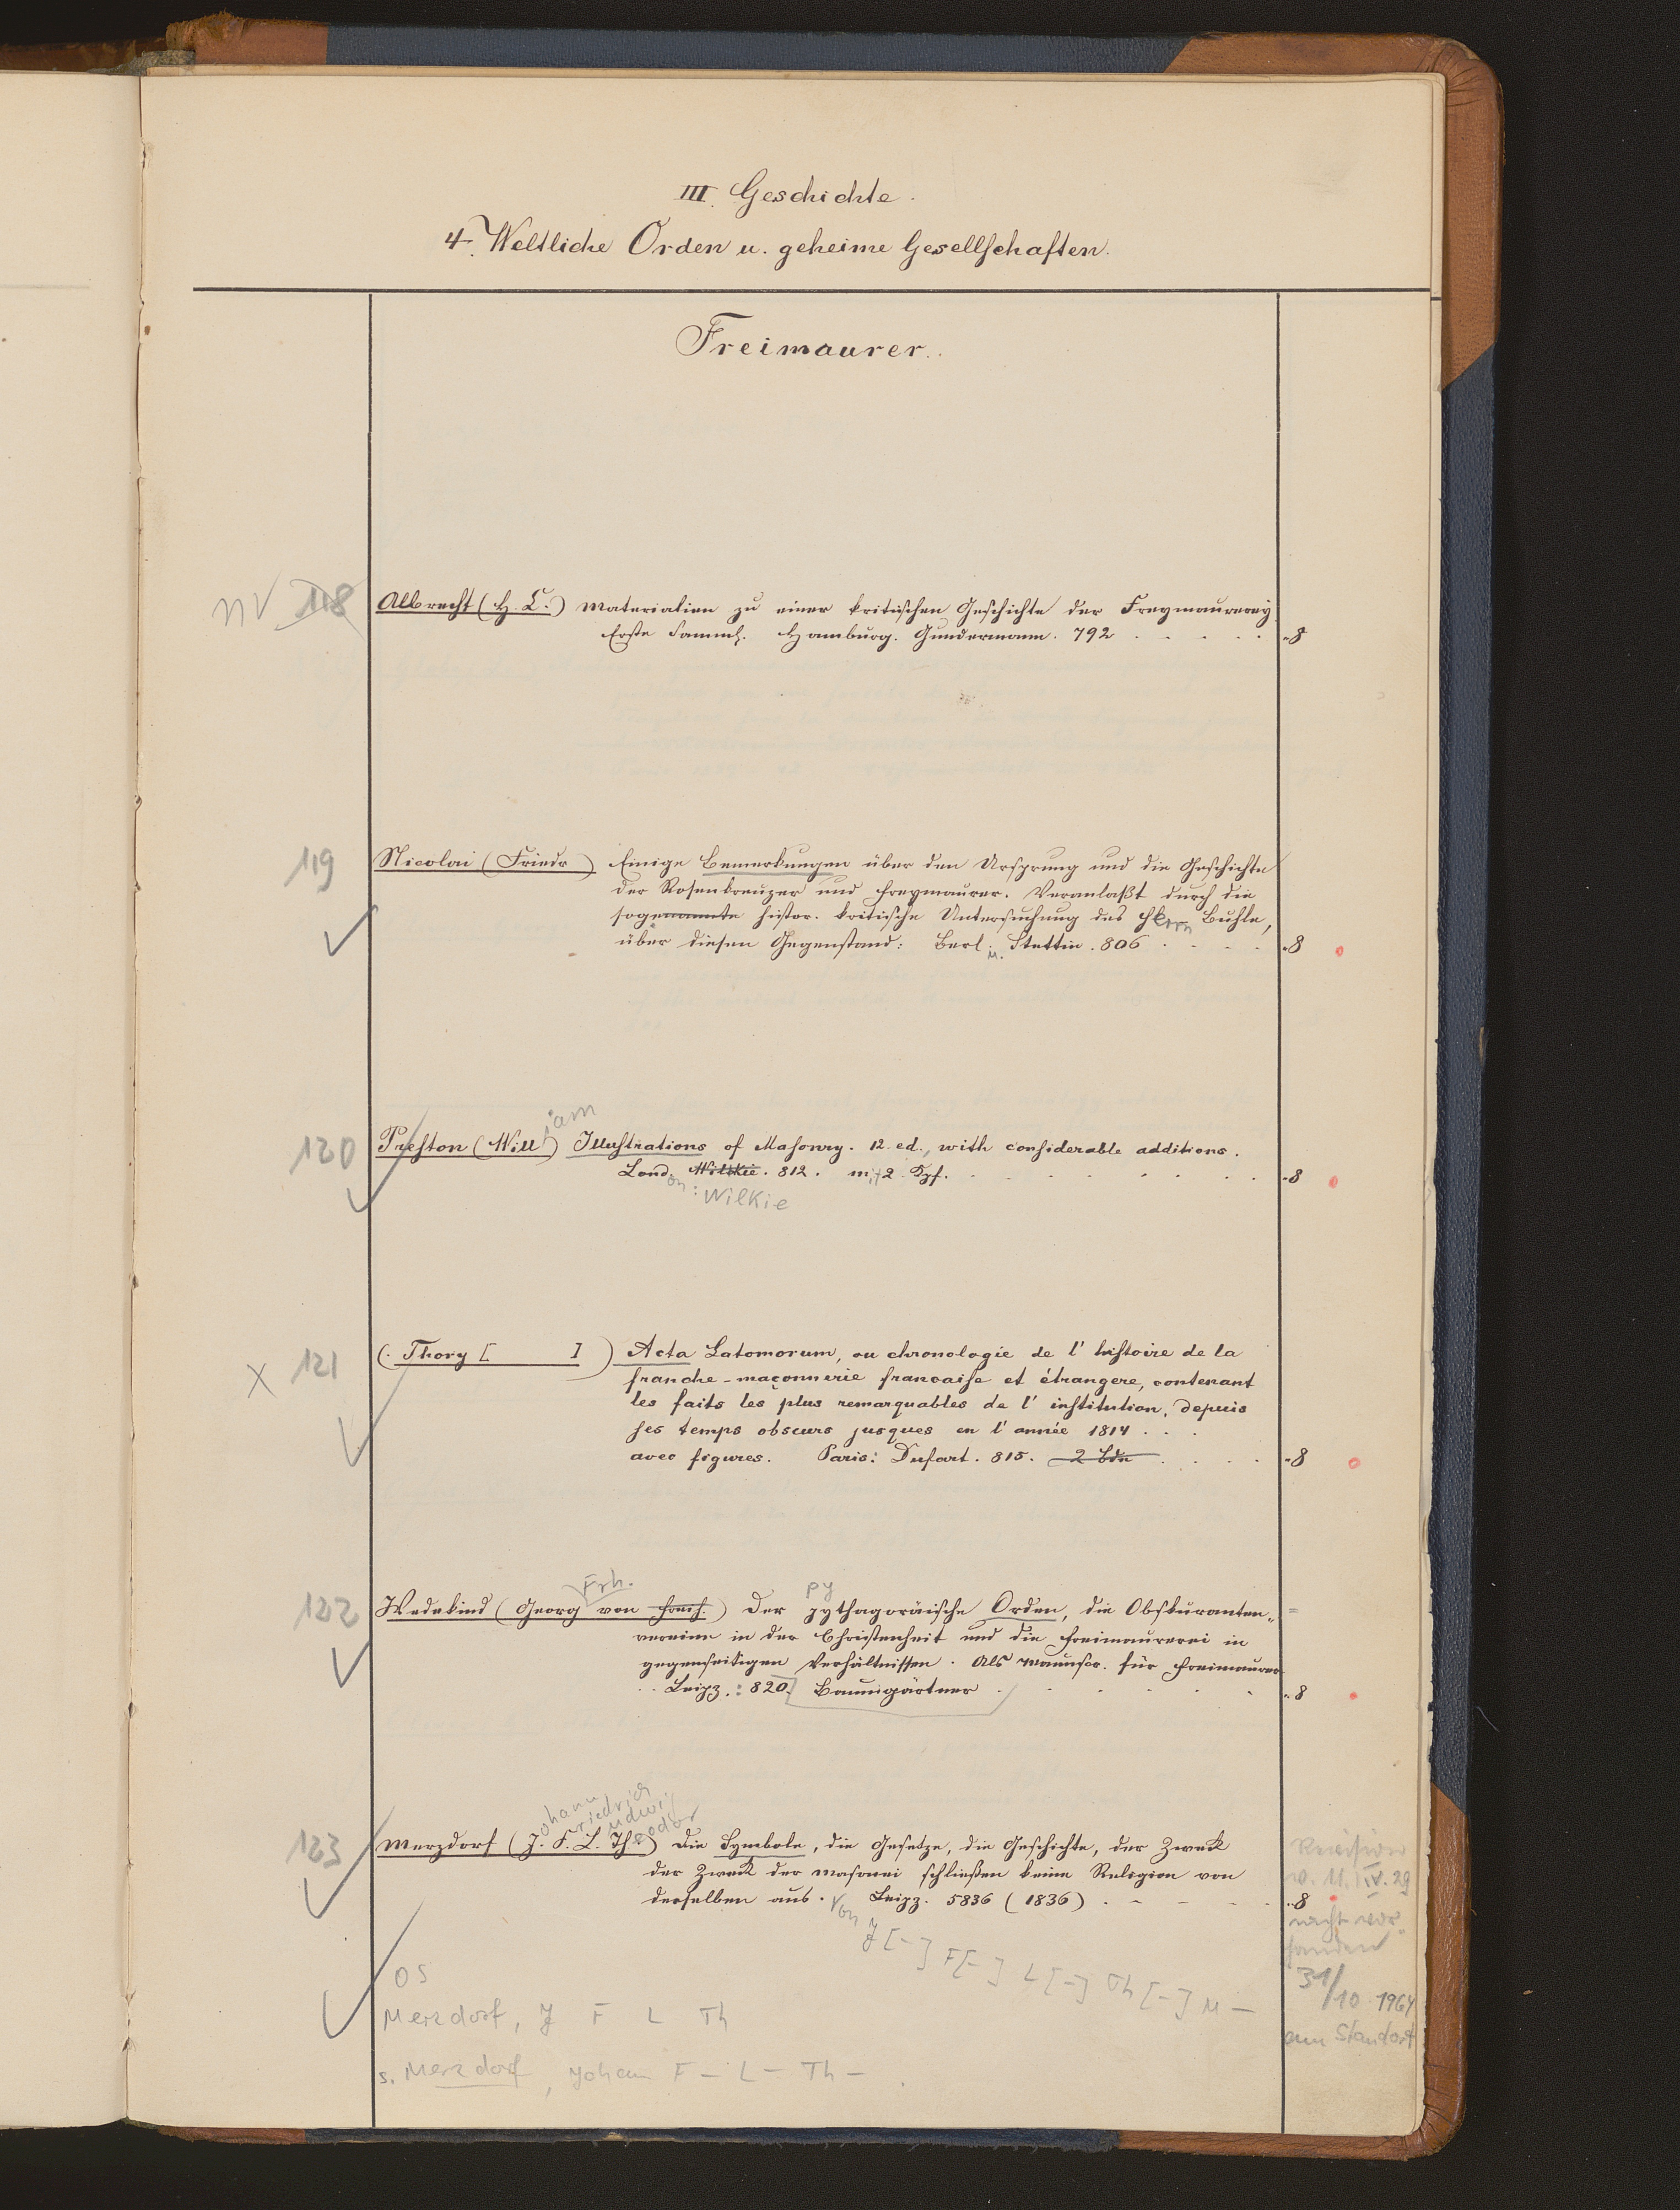 III. Geschichte.
4. Weltliche Orden u. geheime Gesellschaften.
Freimaurer.
nV 118
Albrecht (H. C.) Materialien zu einer kritischen Geschichte der Freymaurerey
Erste Samml. Hamburg. Gundermann. 792 . . . . . -8
119
Nicolai (Friedr ) Einige Bemerkungen über den Ursprung und die Geschichte
der Rosenkreuzer und Freymaurer. Veranlaßt durch die
sogenannte histor. kritische Untersuchung des Herrn Buhle,
über diesen Gegenstand: Berl. u. Stettin. 806 . . . . -8
iam
120
Preston (Will ) Illustrations of Masonry. 12. ed., with considerable additions.
London: Wilkie. 812. mit 2 Kpf. . . . . . . . -8
Wilkie
X 121
(. Thory [ ] ) Acta Latomorum, ou chronologie de l'histoire de la
franche-maçonnerie francaise et étrangere, contenant
les faits les plus remarquables de l'institution, depuis
ses temps obscurs jusques en l'année 1814 . . .
avec figures. Paris: Dufart. 815. 2 Bde . . . . -8
Frh. py
122
Wedekind (Georg von Freih.) Der pythagoräische Orden, die Obskuranten-
vereine in der Christenheit und die Freimaurerei in
gegenseitigen Verhältnissen. Als Manuscr. für Freimaurer
Leipz.: 820. Baumgärtner . . . . . -8
ohann riedrich udwig eodor
123
Merzdorf (J. F. L. Th.) Die Symbole, die Gesetze, die Geschichte, der Zweck
der Zweck der Masonei schließen keine Religion von
derselben aus. Leipz. 5836 (1836) . - - - . -8
Von J [-] F[-] L [-] Th [-] M -
Revision
v. 11. IV. 29
nicht vor-
handen
31/10 1964
am Standort
OS
Merzdorf, J F L Th
s. Merzdorf, Johann F - L - Th - .